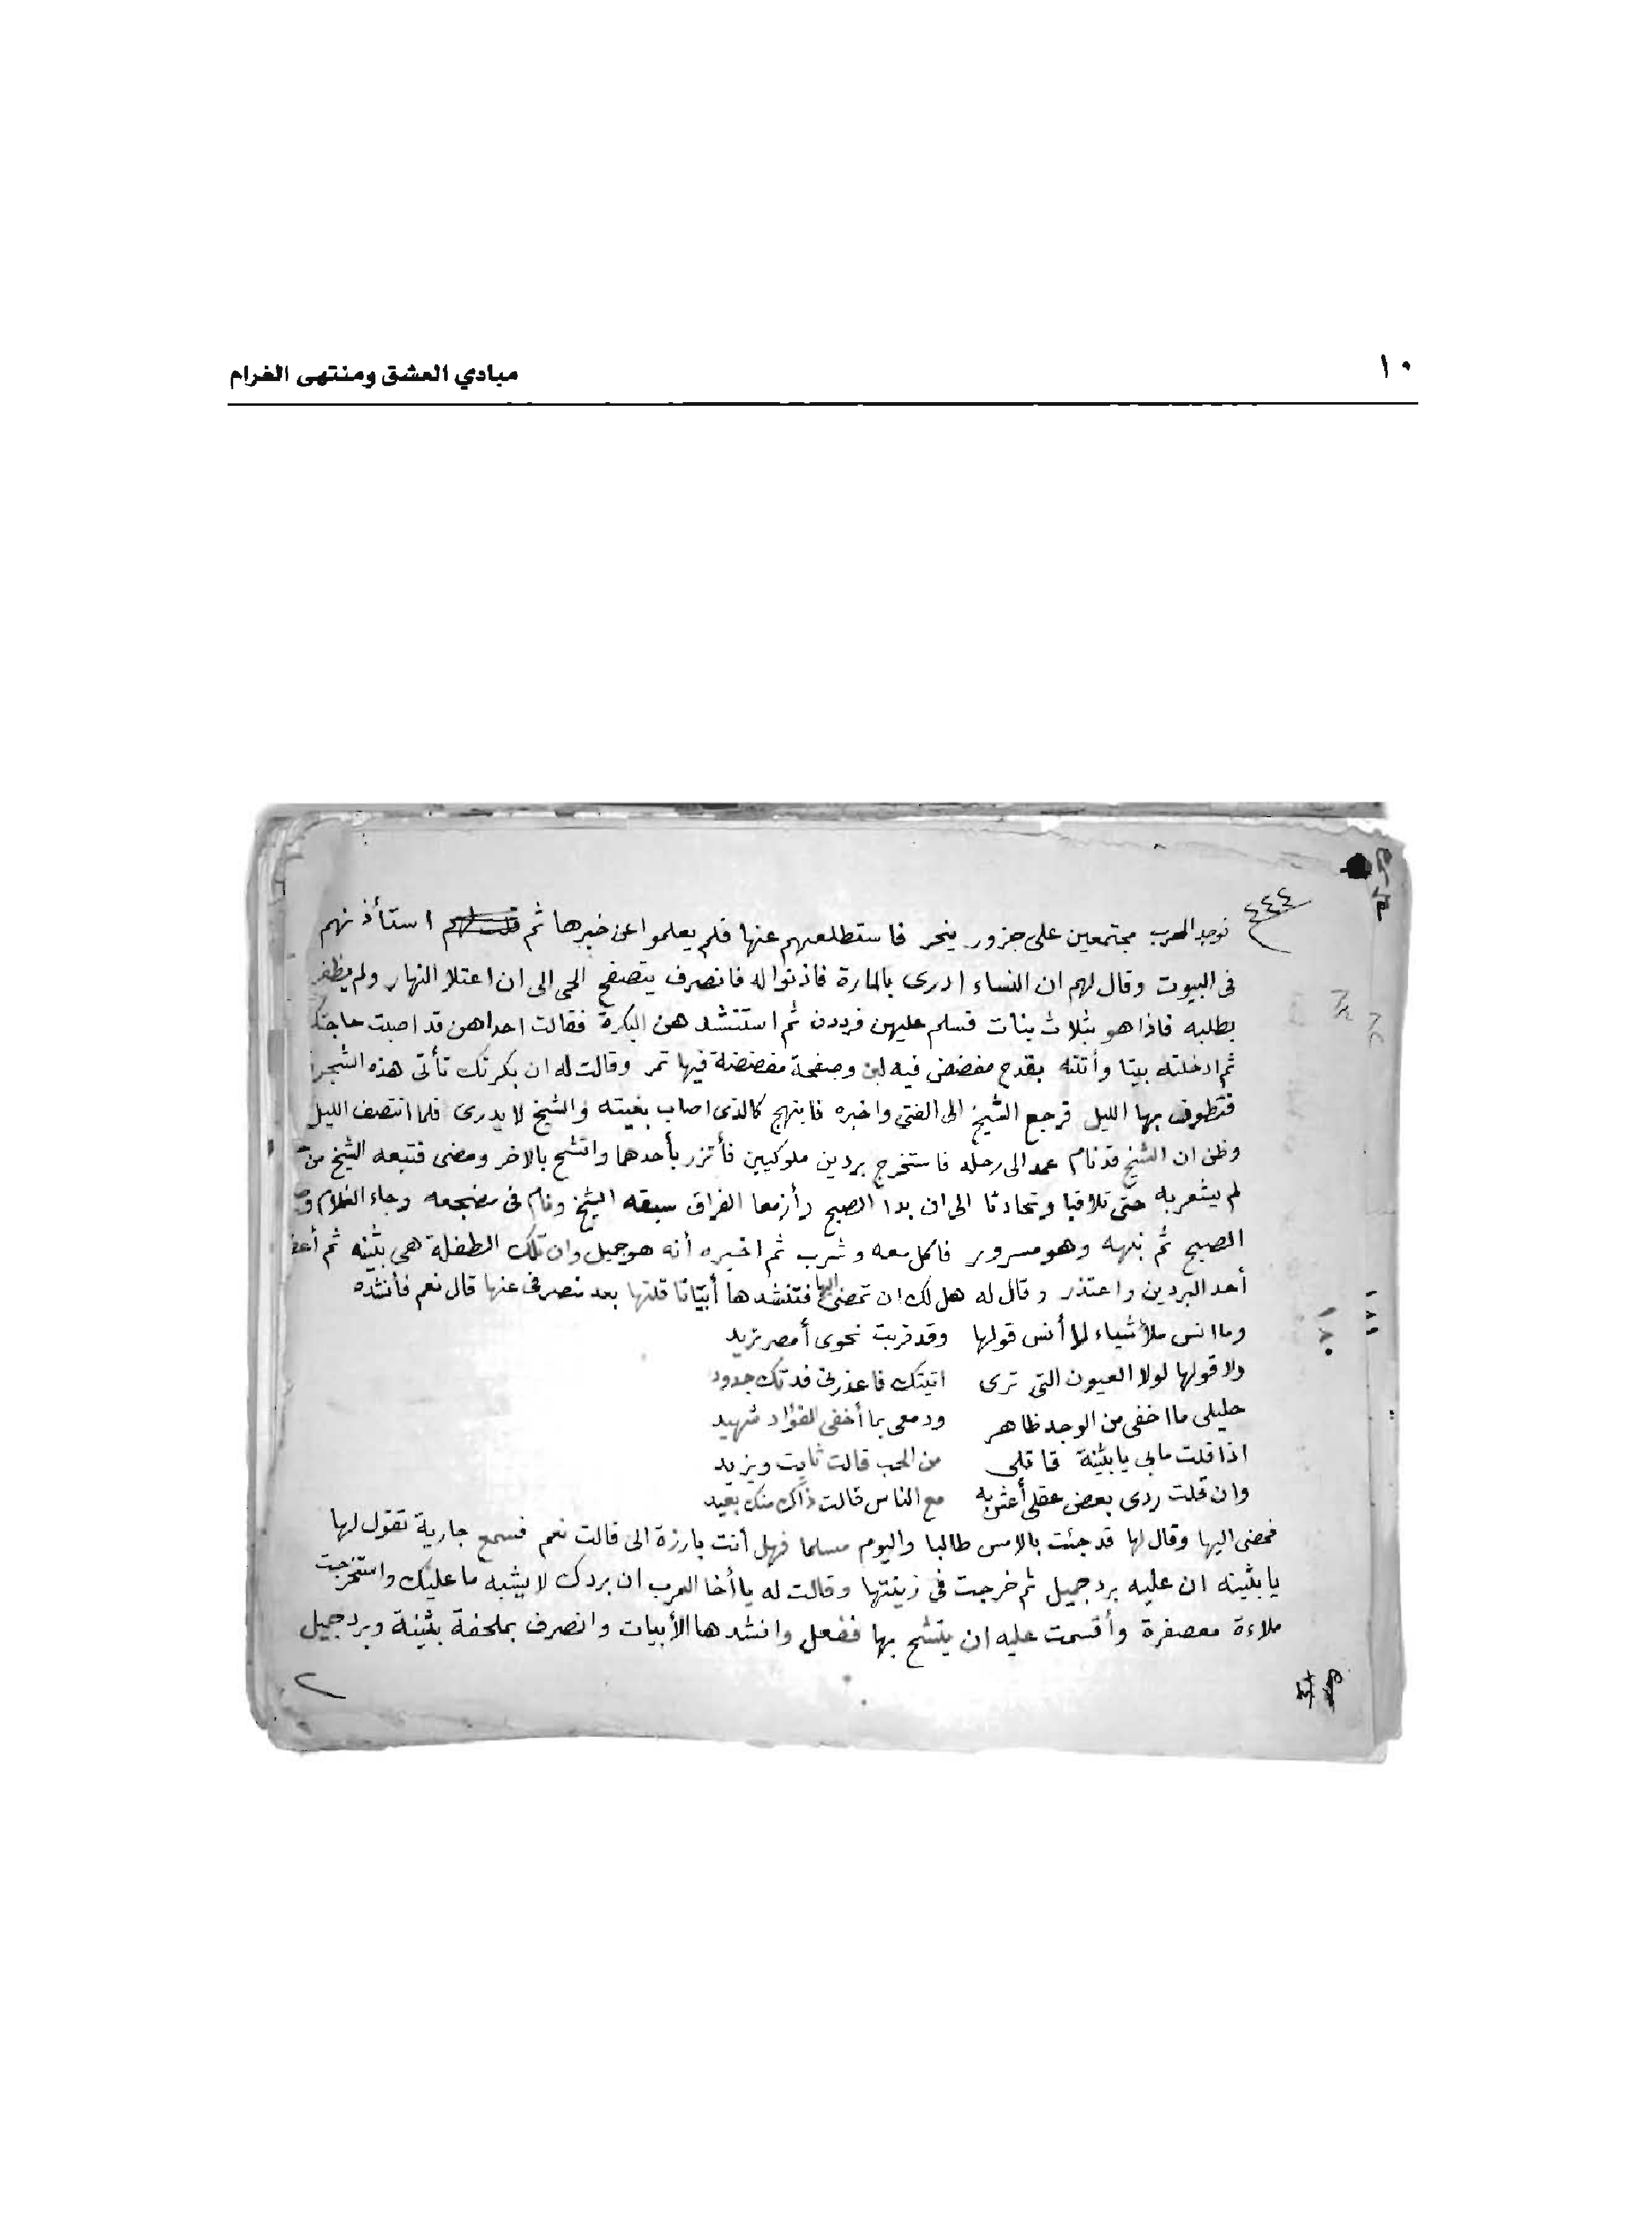 ١٠
مبادي العشق ومنتهى الغرام
٤٤٤
فوجد العرب مجتمعين على جزور ينحر فاستطلعهم عنها فلم يعلموا عن خبرها ثم استأذنهم
فى البيوت وقال لهم ان النساء ادرى بالمارة فاذنوا له فانصرف يتصفح الحى الى ان اعتلا النهار ولم يظفر
بطلبه فاذا هو بثلاث بنات فسلم عليهن فرددن ثم استنشدهن البكرة فقالت احداهن قد اصبت حاجتك
ثم ادخلته بيتا وأتته بقدح مفضض فيه لبن وصفحة مفضضة فيها تمر وقالت له ان بكرتك تأتى هذه الشجرة
فتطوف بها الليل فرجع الشيخ الى الفتى واخبره فابتهج كالذى اصاب بغيته والشيخ لا يدرى فلما انتصف الليل
وظن ان الشيخ قد نام عمد الى رحله فاستخرج بردين ملوكيين فأتزر بأحدهما واتشح بالاخر ومضى فتبعه الشيخ من
لم يشعر به حتى تلاقيا وتحادثا الى ان بدا الصبح وأزمعا الفراق سبقه الشيخ ونام فى مضجعه وجاء الغلام
الصبح ثم نبهه وهو مسرور فاكل معه وشرب ثم اخبره أنه هو جميل وان تلك الطفلة هى بثينه ثم
أحد البردين واعتذر وقال له هل لك ان تمضى اليها فتنشدها أبياتا قلتها بعد منصرفى عنها قال نعم فأنشده
وما انس ملأشياء لا أنس قولها وقد قربت نحوى أمصر تريد
ولا قولها لولا العيون التى ترى اتيتك فاعذرنى فدتك جدود
خليلى ما اخفى من الوجد ظاهر ودمعى بما أخفى الفؤاد شهيد
اذا قلت مابى يا بثينة قاتلى من الحب قالت ثابت ويزيد
وان قلت ردى بعض عقلى أعش به مع الناس قالت ذاك منك بعيد
فمضى اليها وقال لها قد جئت بالامس طالبا واليوم مسلما فهل أنت بارزة الى قالت نعم فسمع جارية تقول لها
يا بثينه ان عليه برد جميل ثم خرجت فى زينتها وقالت له يا أخا العرب ان بردك لا يشبه ما عليك واستخرجت
ملاءة معصفرة وأقسمت عليه ان يتشح بها ففعل وانشدها الأبيات وانصرف بملحفة بثينة وبرد جميل
١٨٠
١٨١
٢